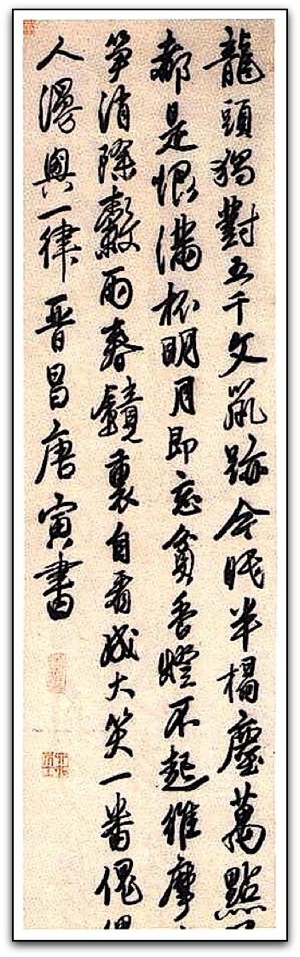 龍頭獨對五千文鼠跡今眠半榻塵萬點
都是恨滿杯明月即忘貧香燈不起維摩
筍消除穀雨春鏡裏自看成大笑一番傀
人漫興一律晉昌唐寅書